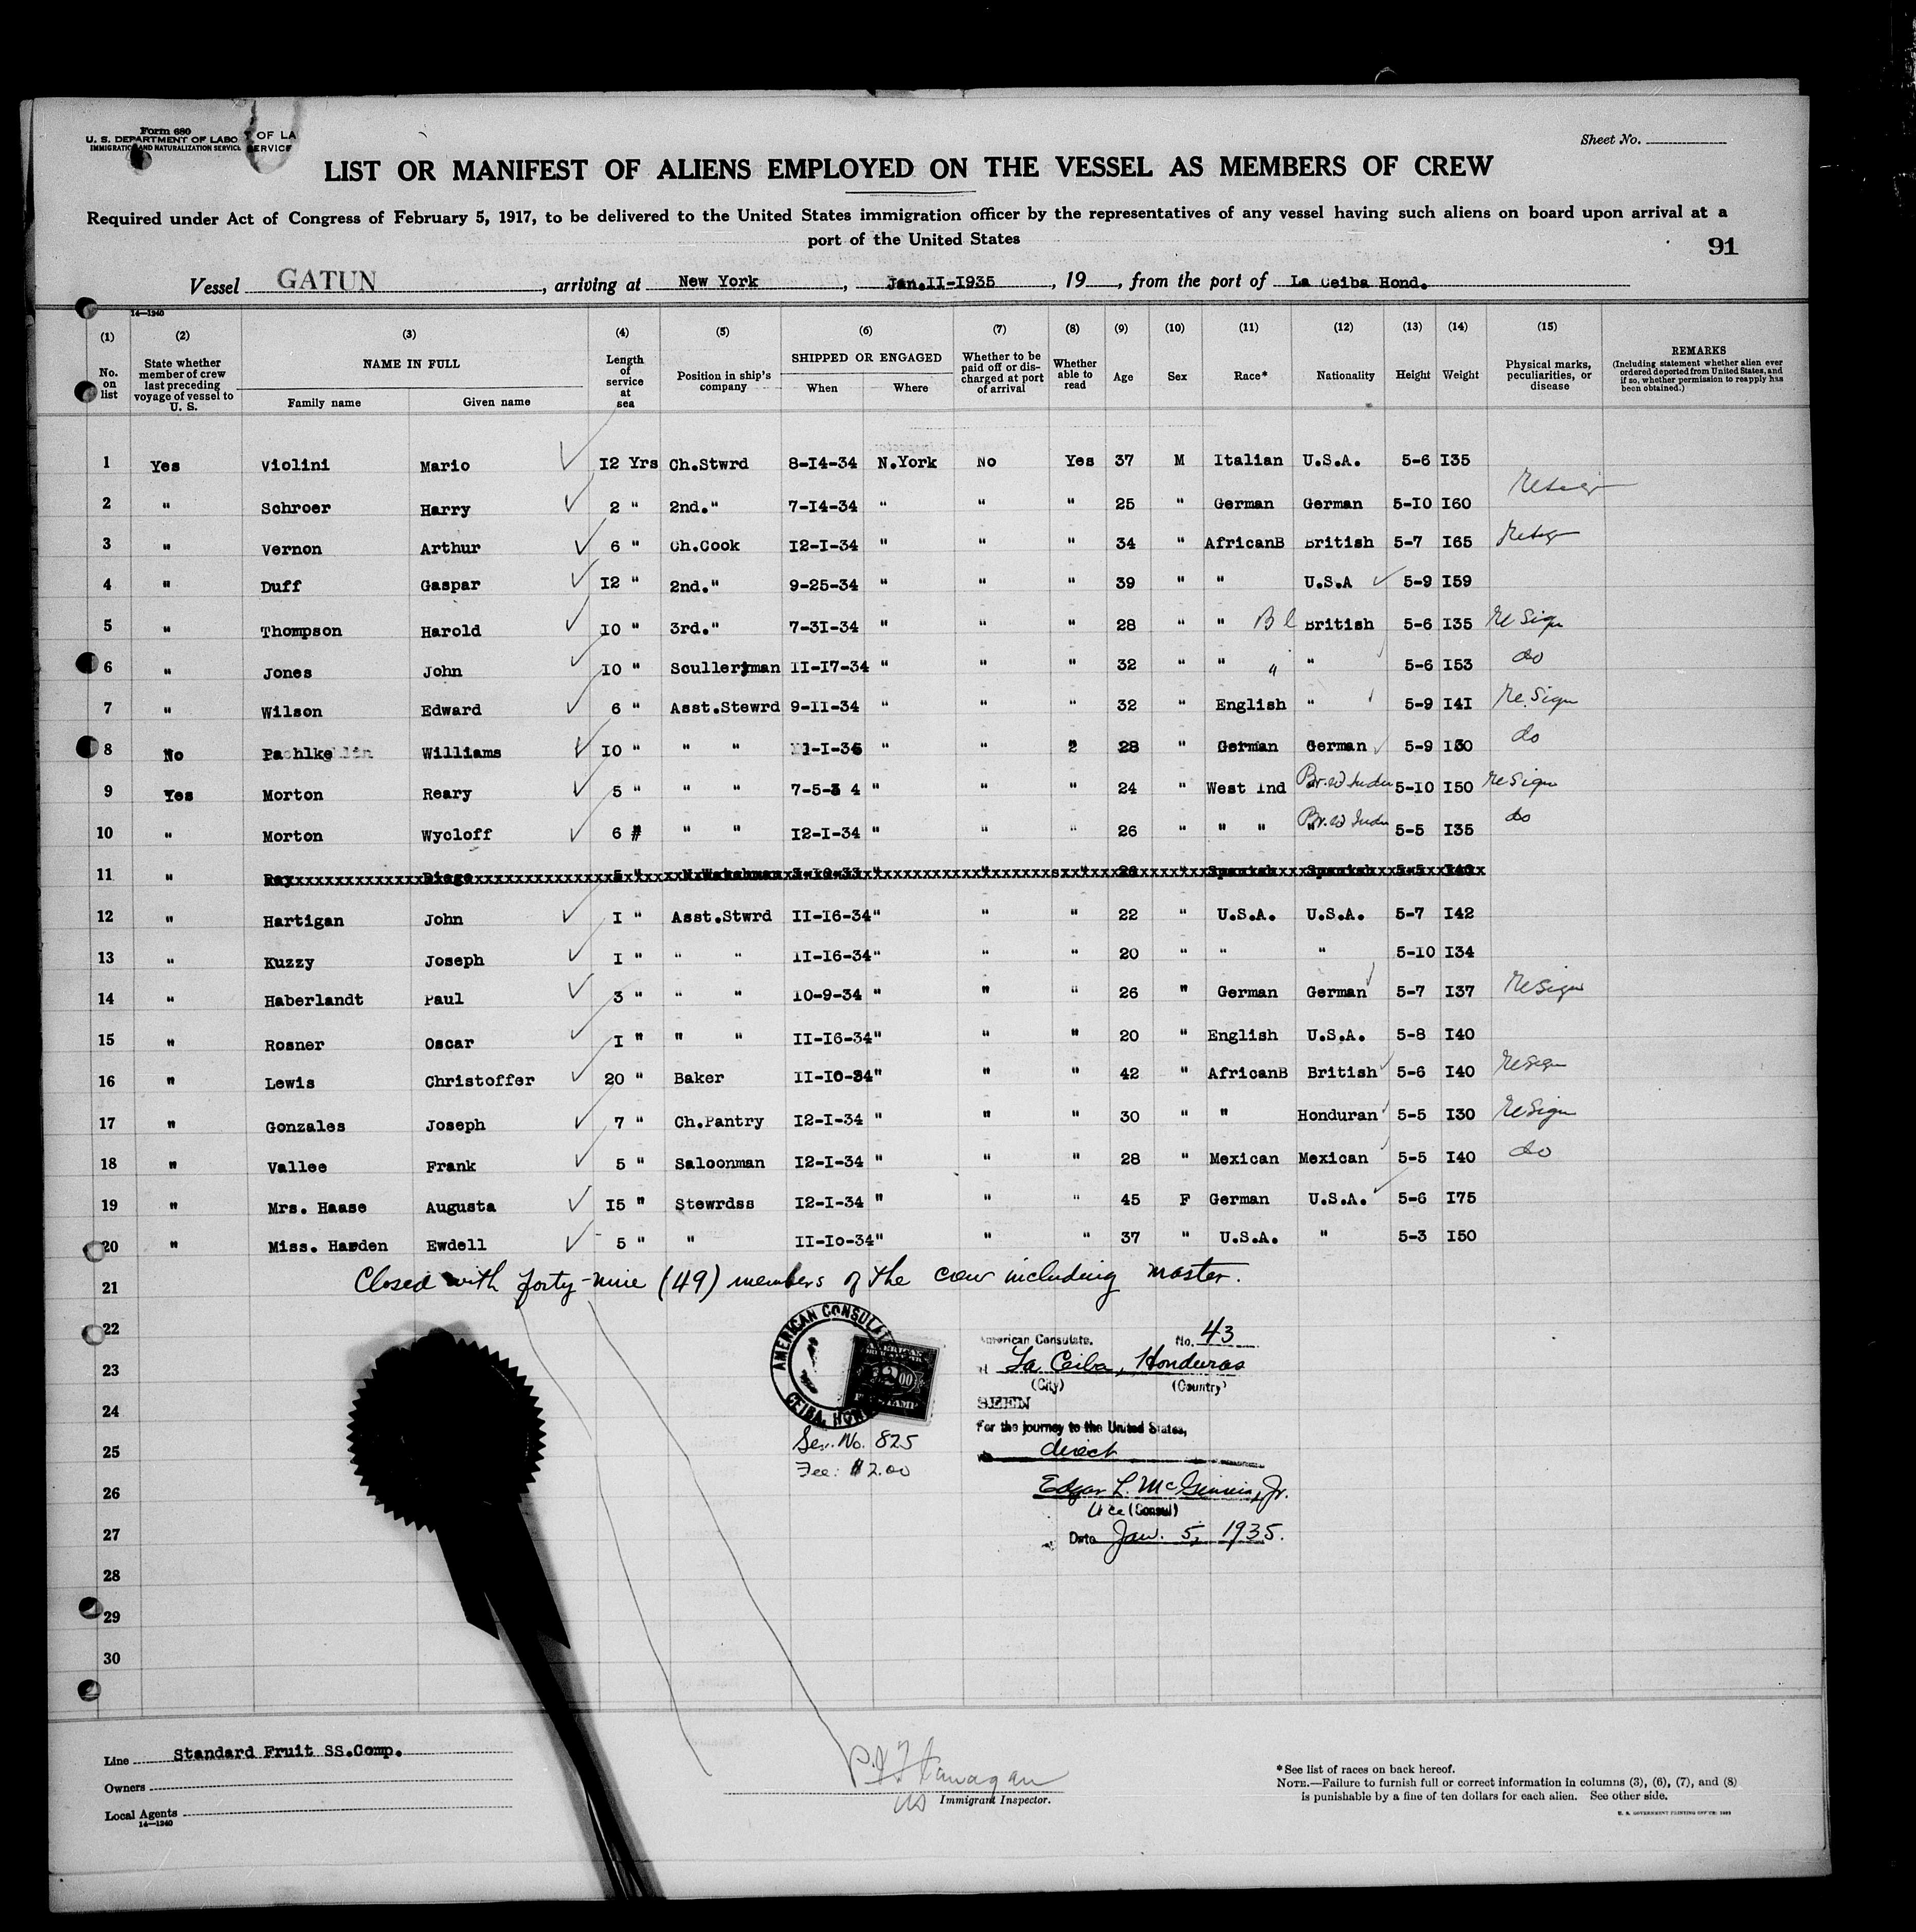 Form 680
U. S. DEPARTMENT OF LABO
T OF LA
IMMIGRATION AND NATURALIZATION SERVICE
SERVICE
Sheet No.
LIST OR MANIFEST OF ALIENS EMPLOYED ON THE VESSEL AS MEMBERS OF CREW
Required under Act of Congress of February 5, 1917, to be delivered to the United States immigration officer by the representatives of any vessel having such aliens on board upon arrival at a
port of the United States
91
Vessel GATUN, arriving at New York, Jan.II-I935, 19, from the port of La Ceiba Hond.
14—1240
(1) (2) (3) (4) (5) (6) (7) (8) (9) (10) (11) (12) (13) (14) (15)
No. on list
State whether member of crew last preceding voyage of vessel to U. S.
NAME IN FULL
Family name Given name
Length of service at sea
Position in ship's company
SHIPPED OR ENGAGED
When Where
Whether to be paid off or discharged at port of arrival
Whether able to read
Age
Sex
Race*
Nationality
Height
Weight
Physical marks, peculiarities, or disease
REMARKS
(Including statement whether alien ever ordered deported from United States, and if so, whether permission to reapply has been obtained.)
1 Yes Violini Mario I2 Yrs Ch.Stwrd 8-I4-34 N.York No Yes 37 M Italian U.S.A. 5-6 I35
2 " Schroer Harry 2 " 2nd." 7-I4-34 " " " 25 " German German 5-I0 I60 resign
3 " Vernon Arthur 6 " Ch.Cook I2-I-34 " " " 34 " AfricanB British 5-7 I65 resign
4 " Duff Gaspar I2 " 2nd." 9-25-34 " " " 39 " " U.S.A 5-9 I59
5 " Thompson Harold I0 " 3rd." 7-3I-34 " " " 28 " " Bl British 5-6 I35 re Sign
6 " Jones John I0 " Sculleryman II-I7-34 " " " 32 " " " " 5-6 I53 do
7 " Wilson Edward 6 " Asst.Stewrd 9-II-34 " " " 32 " English " 5-9 I4I re Sign
8 No Pachlke Williams I0 " " " 1-I-35 " " 2 28 " German German 5-9 I30 do
9 Yes Morton Reary 5 " " " 7-5-3 4 " " " 24 " West Ind Br. W Indu 5-I0 I50 re Sign
10 " Morton Wycloff 6 # " " I2-I-34 " " " 26 " " " Br. W Indu 5-5 I35 do
11 " Ray Diego 5 " N.Watchman 3-I0-33 " " " 26 " Spanish Spanish 5-5 I40
12 " Hartigan John I " Asst.Stwrd II-I6-34" " " 22 " U.S.A. U.S.A. 5-7 I42
13 " Kuzzy Joseph I " " " II-I6-34" " " 20 " " " 5-I0 I34
14 " Haberlandt Paul 3 " " " I0-9-34 " " " 26 " German German 5-7 I37 resign
15 " Rosner Oscar I " " " II-I6-34" " " 20 " English U.S.A. 5-8 I40
16 " Lewis Christoffer 20 " Baker II-I0-34" " " 42 " AfricanB British 5-6 I40 resign
17 " Gonzales Joseph 7 " Ch.Pantry I2-I-34 " " " 30 " " Honduran 5-5 I30 reSign
18 " Vallee Frank 5 " Saloonman I2-I-34 " " " 28 " Mexican Mexican 5-5 I40 do
19 " Mrs. Haase Augusta I5 " Stewrdss I2-I-34 " " " 45 F German U.S.A. 5-6 I75
20 " Miss. Harden Ewdell 5 " " II-I0-34" " " 37 " U.S.A. " 5-3 I50
21 Closed with forty-nine (49) members of the crew including master.
22
23
24
25
26
27
28
29
30
AMERICAN CONSULATE
CEIBA, HON
AMERICAN
2 00
FEE STAMP
Ser. No. 825
Fee: $2.00
American Consulate. No. 43
at La Ceiba, Honduras
(City) (Country)
SEEN
For the journey to the United States,
via direct
Edgar L. McGinnis, Jr.
Vice (Consul)
Date Jan. 5, 1935.
Line Standard Fruit SS.Comp.
Owners
Local Agents
14—1240
P. J. Flanagan
US Immigrant Inspector.
*See list of races on back hereof.
NOTE.—Failure to furnish full or correct information in columns (3), (6), (7), and (8)
is punishable by a fine of ten dollars for each alien. See other side.
U. S. GOVERNMENT PRINTING OFFICE: